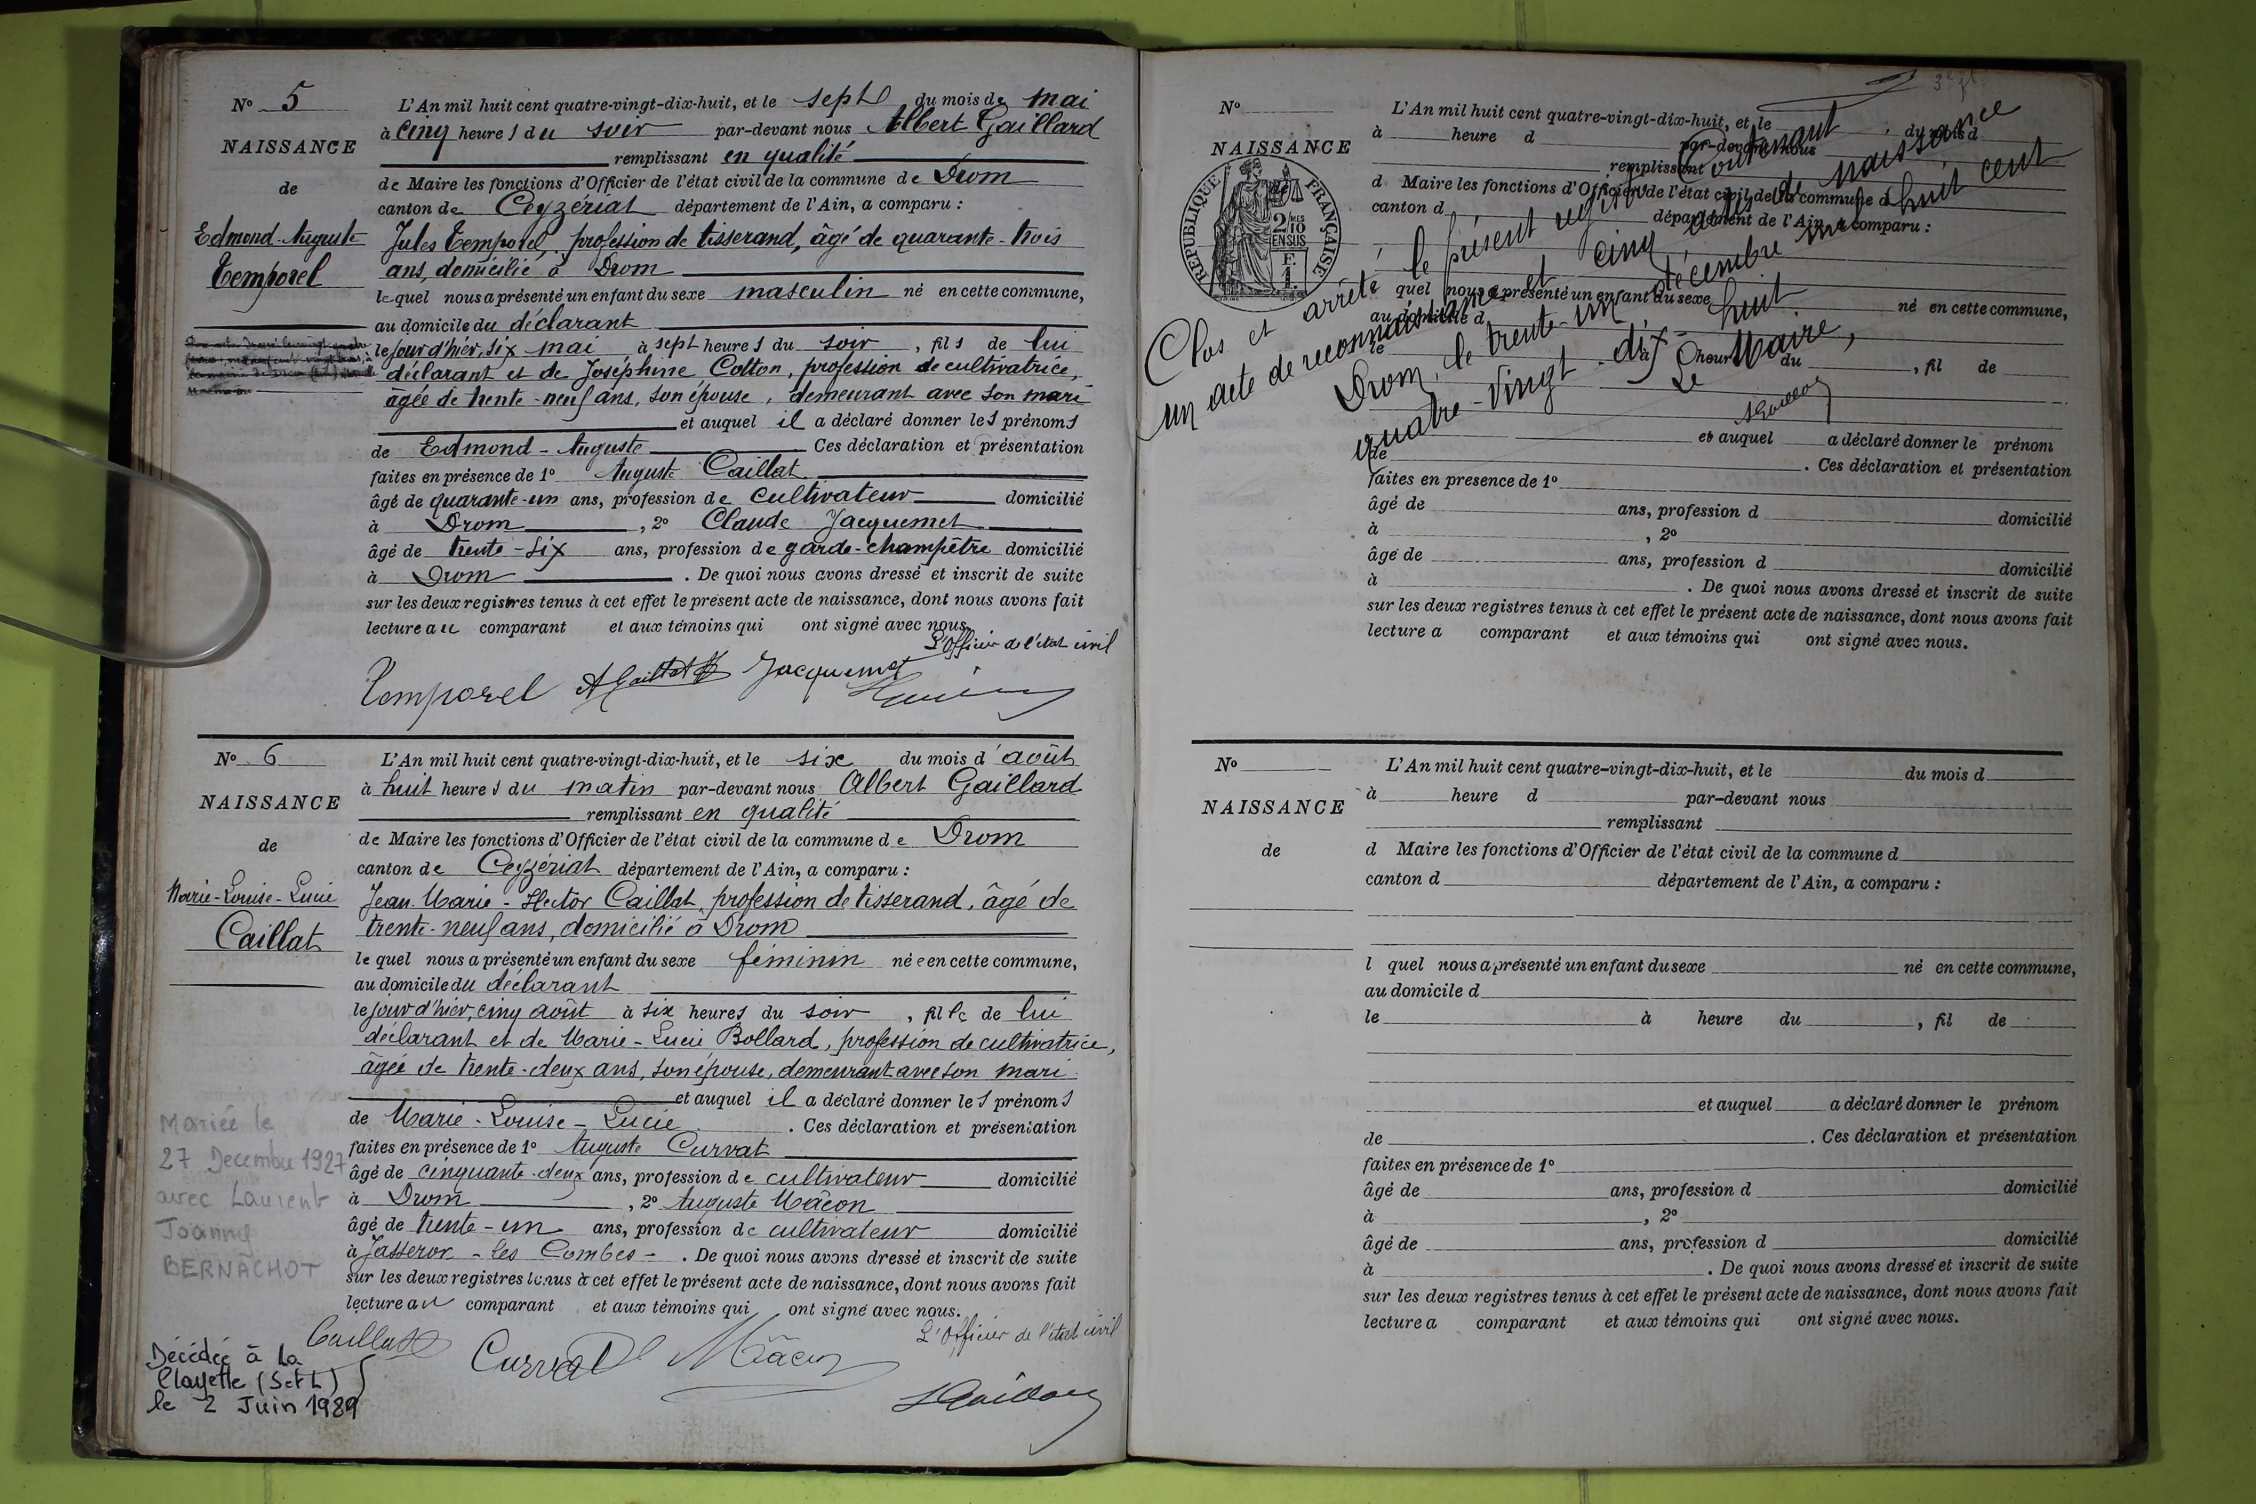 N° 5
NAISSANCE
de
Edmond-Auguste
Temporel
L'An mil huit cent quatre-vingt-dix-huit, et le sept du mois de mai
à cinq heures du soir par-devant nous Albert Gaillard
remplissant en qualité
de Maire les fonctions d'Officier de l'état civil de la commune de Drom
canton de Ceyzériat département de l'Ain, a comparu :
Jules Temporel, profession de tisserand, âgé de quarante-trois
ans, domicilié à Drom
lequel nous a présenté un enfant du sexe masculin né en cette commune,
au domicile du déclarant
le jour d'hier, six mai à sept heures du soir, fils de lui
déclarant et de Joséphine Cotton, profession de cultivatrice,
âgée de trente-neuf ans, son épouse, demeurant avec son mari
et auquel il a déclaré donner les prénoms
de Edmond-Auguste Ces déclaration et présentation
faites en présence de 1° Auguste Caillat
âgé de quarante-un ans, profession de cultivateur domicilié
à Drom, 2° Claude Jacquemet
âgé de trente-six ans, profession de garde-champêtre domicilié
à Drom. De quoi nous avons dressé et inscrit de suite
sur les deux registres tenus à cet effet le présent acte de naissance, dont nous avons fait
lecture au comparant et aux témoins qui ont signé avec nous.
L'Officier de l'état civil
Temporel A Caillat Jacquemet
N° 6
NAISSANCE
de
Marie-Louise-Lucie
Caillat
L'An mil huit cent quatre-vingt-dix-huit, et le six du mois d'août
à huit heures du matin par-devant nous Albert Gaillard
remplissant en qualité
de Maire les fonctions d'Officier de l'état civil de la commune de Drom
canton de Ceyzériat département de l'Ain, a comparu :
Jean-Marie-Hector Caillat, profession de tisserand, âgé de
trente-neuf ans, domicilié à Drom
lequel nous a présenté un enfant du sexe féminin née en cette commune,
au domicile du déclarant
le jour d'hier, cinq août à six heures du soir, fille de lui
déclarant et de Marie-Lucie Bollard, profession de cultivatrice,
âgée de trente-deux ans, son épouse, demeurant avec son mari
et auquel il a déclaré donner les prénoms
de Marie-Louise-Lucie. Ces déclaration et présentation
faites en présence de 1° Auguste Curvat
âgé de cinquante-deux ans, profession de cultivateur domicilié
à Drom, 2° Auguste Mâcon
âgé de trente-un ans, profession de cultivateur domicilié
à Jasseron-les Combes-. De quoi nous avons dressé et inscrit de suite
sur les deux registres tenus à cet effet le présent acte de naissance, dont nous avons fait
lecture au comparant et aux témoins qui ont signé avec nous.
L'Officier de l'état civil
Caillat Curvat Mâcon
Mariée le
27 Decembre 1927
avec Laurent
Joanny
BERNACHOT
Décédée à La
Clayette (S et L)
le 2 Juin 1989
N°
NAISSANCE
RÉPUBLIQUE FRANÇAISE
2/10 MES
EN SUS
F.
1.
L'An mil huit cent quatre-vingt-dix-huit, et le du mois d
à heure d par-devant nous
remplissant
d Maire les fonctions d'Officier de l'état civil de la commune d
canton d département de l'Ain, a comparu :
quel nous a présenté un enfant du sexe né en cette commune,
au domicile d
le à heure du, fil de
et auquel a déclaré donner le prénom
de. Ces déclaration et présentation
faites en présence de 1°
âgé de ans, profession d domicilié
à, 2°
âgé de ans, profession d domicilié
à. De quoi nous avons dressé et inscrit de suite
sur les deux registres tenus à cet effet le présent acte de naissance, dont nous avons fait
lecture a comparant et aux témoins qui ont signé avec nous.
Clos et arrêté le présent registre Contenant
un acte de reconnaissance et cinq actes de naissance
Drom, le trente-un décembre mil huit cent
quatre-vingt-dix-huit.
Le Maire,
N°
NAISSANCE
de
L'An mil huit cent quatre-vingt-dix-huit, et le du mois d
à heure d par-devant nous
remplissant
d Maire les fonctions d'Officier de l'état civil de la commune d
canton d département de l'Ain, a comparu :
l quel nous a présenté un enfant du sexe né en cette commune,
au domicile d
le à heure du, fil de
et auquel a déclaré donner le prénom
de. Ces déclaration et présentation
faites en présence de 1°
âgé de ans, profession d domicilié
à, 2°
âgé de ans, profession d domicilié
à. De quoi nous avons dressé et inscrit de suite
sur les deux registres tenus à cet effet le présent acte de naissance, dont nous avons fait
lecture a comparant et aux témoins qui ont signé avec nous.